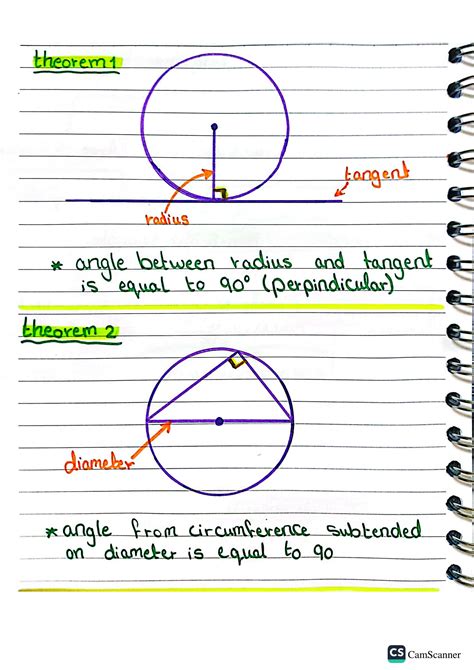 theorem 1
tangent
radius
* angle between radius and tangent
is equal to 90° (perpindicular)
theorem 2
diameter
* angle from circumference subtended
on diameter is equal to 90
CS CamScanner